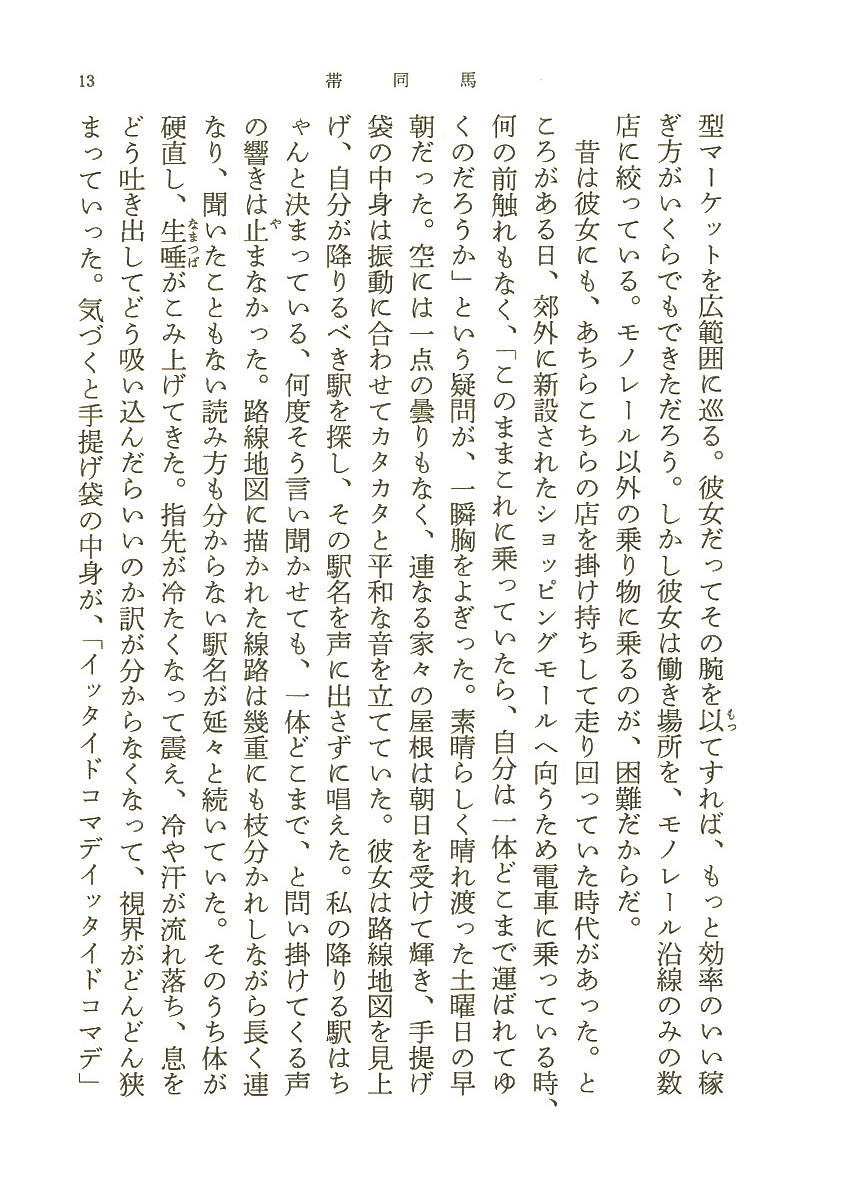 13
帯同馬
型マーケットを広範囲に巡る。彼女だってその腕を以てすれば、もっと効率のいい稼
ぎ方がいくらでもできただろう。しかし彼女は働き場所を、モノレール沿線のみの数
店に絞っている。モノレール以外の乗り物に乗るのが、困難だからだ。
昔は彼女にも、あちらこちらの店を掛け持ちして走り回っていた時代があった。と
ころがある日、郊外に新設されたショッピングモールへ向うため電車に乗っている時、
何の前触れもなく、「このままこれに乗っていたら、自分は一体どこまで運ばれてゆ
くのだろうか」という疑問が、一瞬胸をよぎった。素晴らしく晴れ渡った土曜日の早
朝だった。空には一点の曇りもなく、連なる家々の屋根は朝日を受けて輝き、手提げ
袋の中身は振動に合わせてカタカタと平和な音を立てていた。彼女は路線地図を見上
げ、自分が降りるべき駅を探し、その駅名を声に出さずに唱えた。私の降りる駅はち
ゃんと決まっている、何度そう言い聞かせても、一体どこまで、と問い掛けてくる声
の響きは止まなかった。路線地図に描かれた線路は幾重にも枝分かれしながら長く連
なり、聞いたこともない読み方も分からない駅名が延々と続いていた。そのうち体が
硬直し、生唾がこみ上げてきた。指先が冷たくなって震え、冷や汗が流れ落ち、息を
どう吐き出してどう吸い込んだらいいのか訳が分からなくなって、視界がどんどん狭
まっていった。気づくと手提げ袋の中身が、「イッタイドコマデイッタイドコマデ」
もっ
や
なまつば